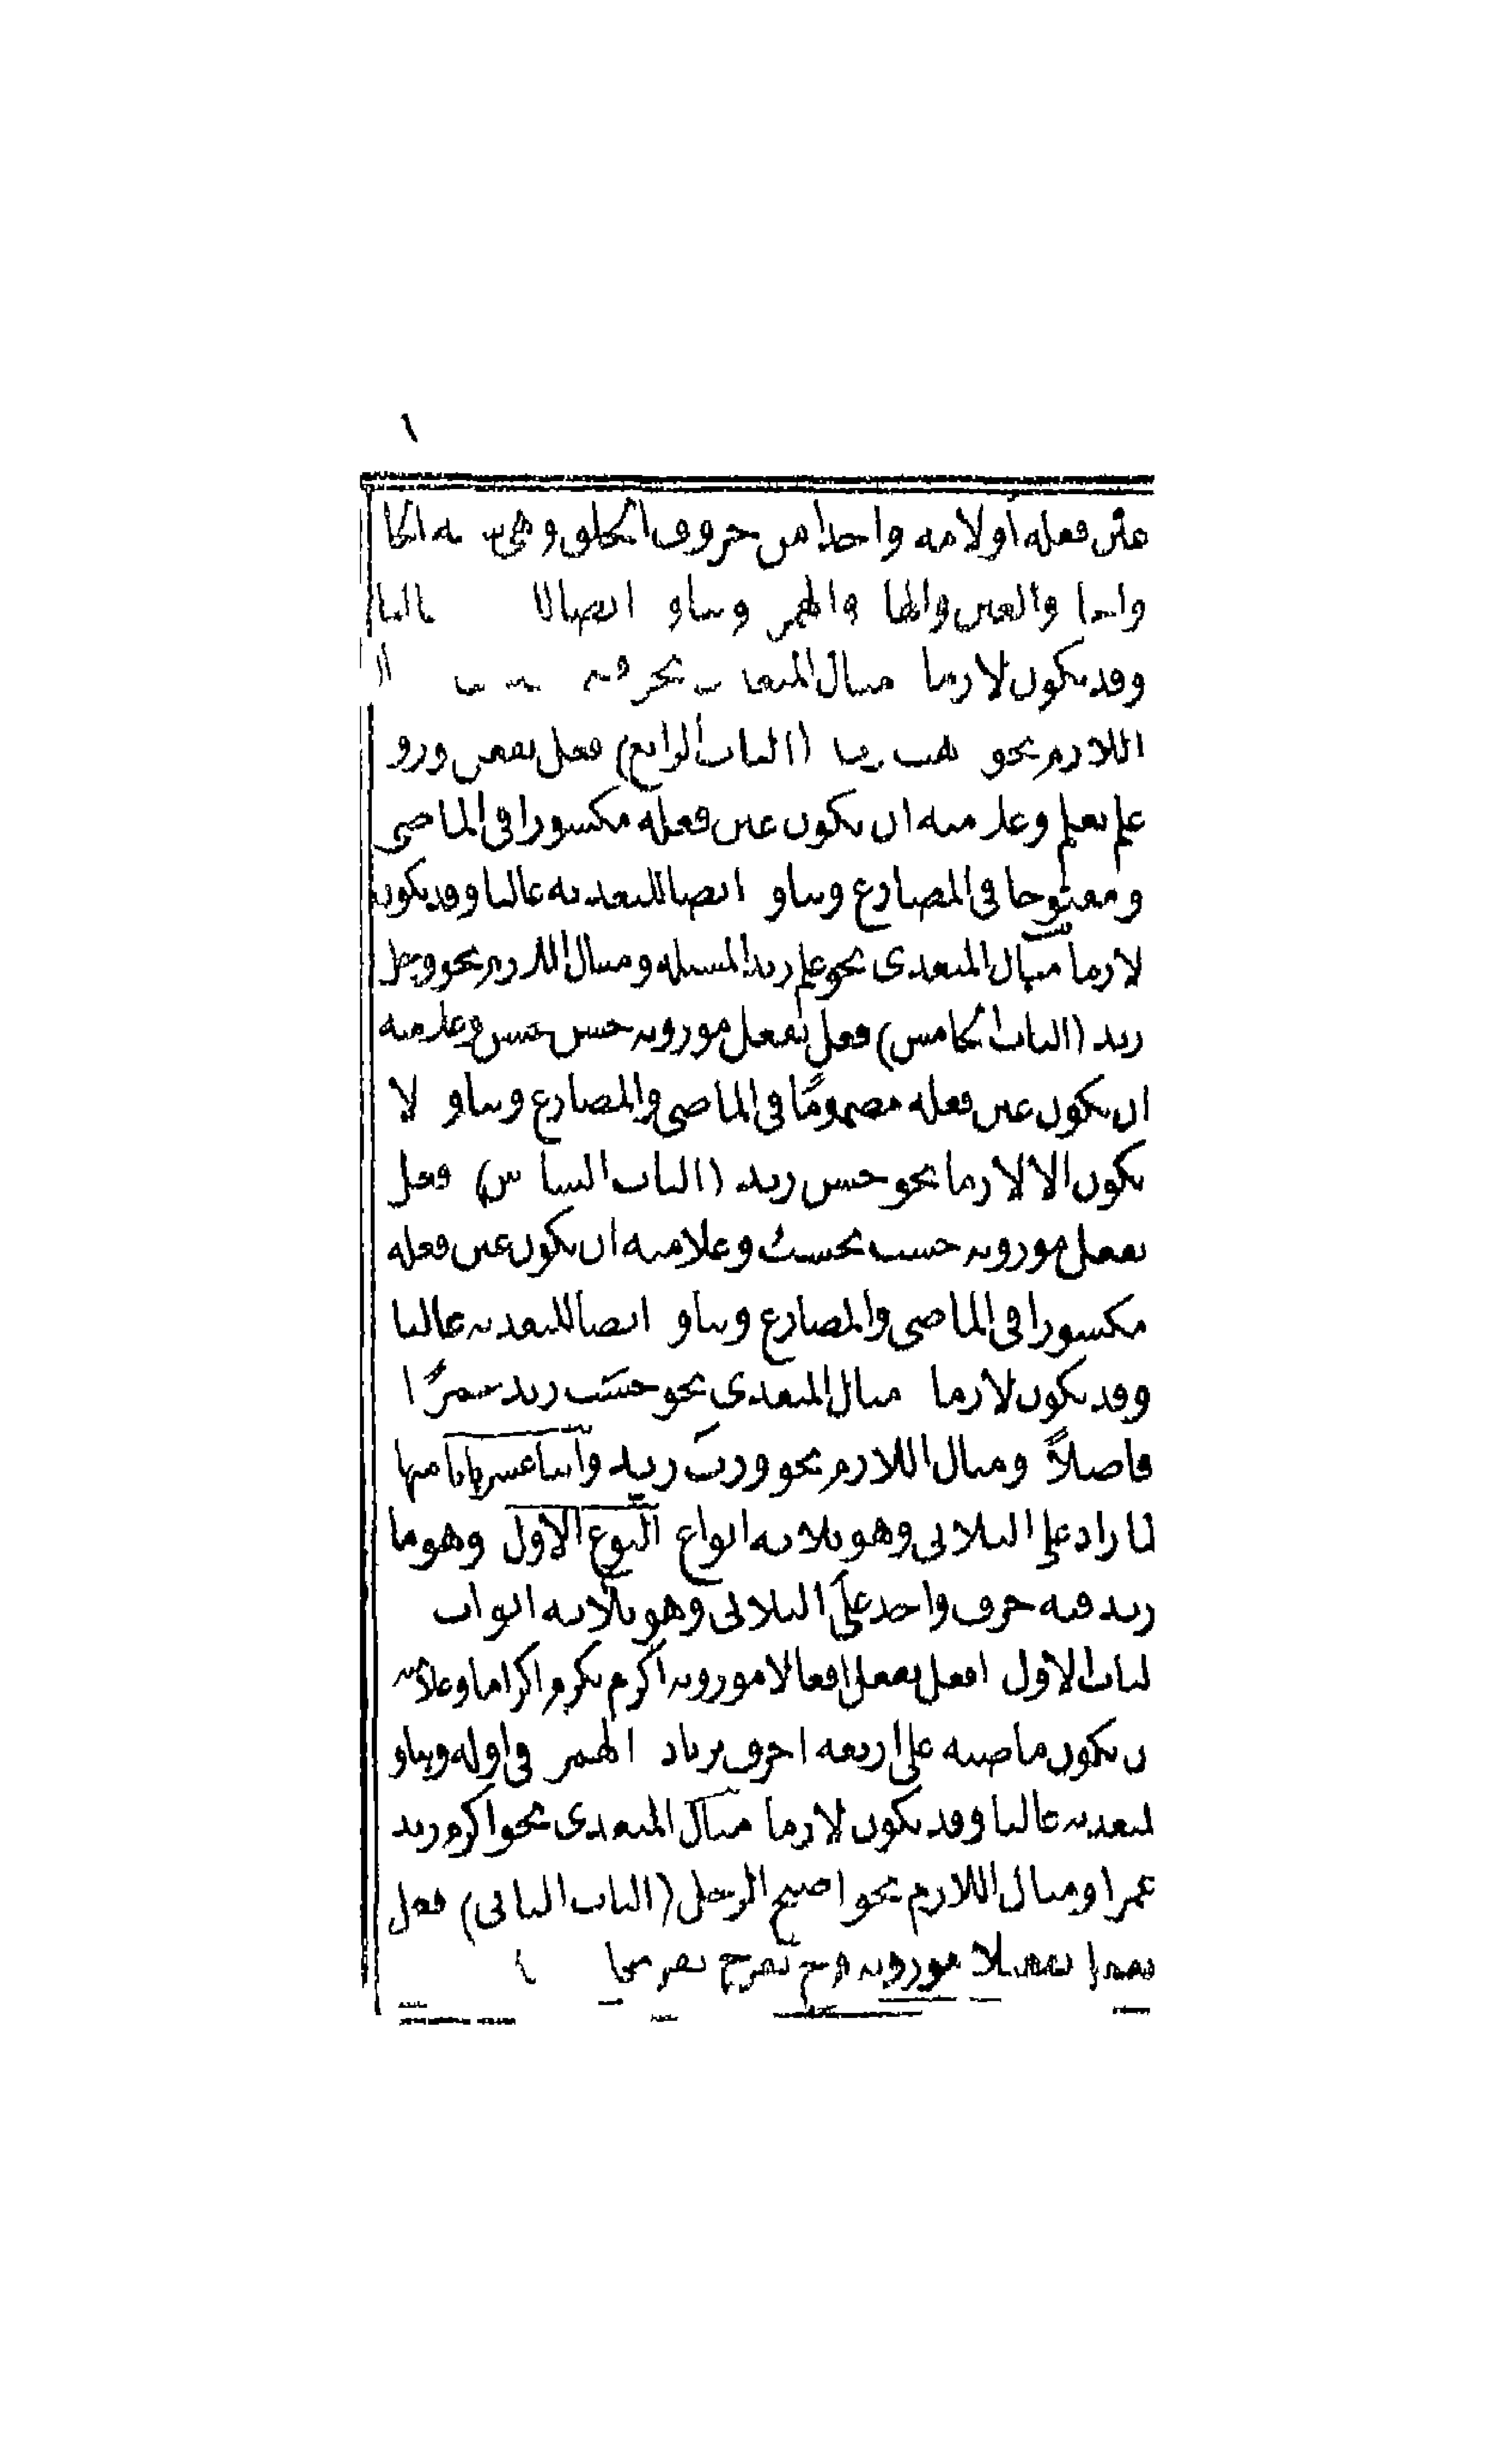 عين فعله أو لامه واحدا من حروف الحلق وهي
والعين والها والهمز وبناو ايضا
وقد يكون لازما مثال المتعد نحو
اللازم نحو ذهب (الباب الرابع) فعل يفعل
علم يعلم وعلامته ان يكون عين فعله مكسورا في الماضي
ومفتوحا في المضارع وبناو ايضا للتعديه غالبا وقد يكون
لازما مثال المتعدى نحو علم زيد المسئله ومثال اللازم نحو وجل
زيد (الباب الخامس) فعل يفعل موزونه حسن يحسن وعلامته
ان يكون عين فعله مضمومًا في الماضي والمضارع وبناو لا
يكون الا لازما نحو حسن زيد (الباب السا س) فعل
يفعل موزونه حسب يحسب وعلامته ان يكون عين فعله
مكسورا في الماضي والمضارع وبناو ايضا للتعديه غالبا
وقد يكون لازما مثال المتعدى نحو حسب زيد عمرًا
فاضلاً ومثال اللازم نحو ورث زيد واثنا عشر بابا منها
لما زاد على الثلاثي وهو ثلاثه انواع النوع الاول وهو ما
زيد فيه حرف واحد على الثلاثي وهو ثلاثه ابواب
لباب الاول افعل يفعل افعالا موزونه اكرم يكرم اكراما وعلامته
ن يكون ماضيه على اربعه احرف بزياد الهمز في اوله وبناو
لتعديه غالبا وقد يكون لازما مثال المتعدى نحو اكرم زيد
عمرا ومثال اللازم نحو اصبح الرجل (الباب الثاني) فعل
يفعل تفعيلا موزونه فرح يفرح تفريحا